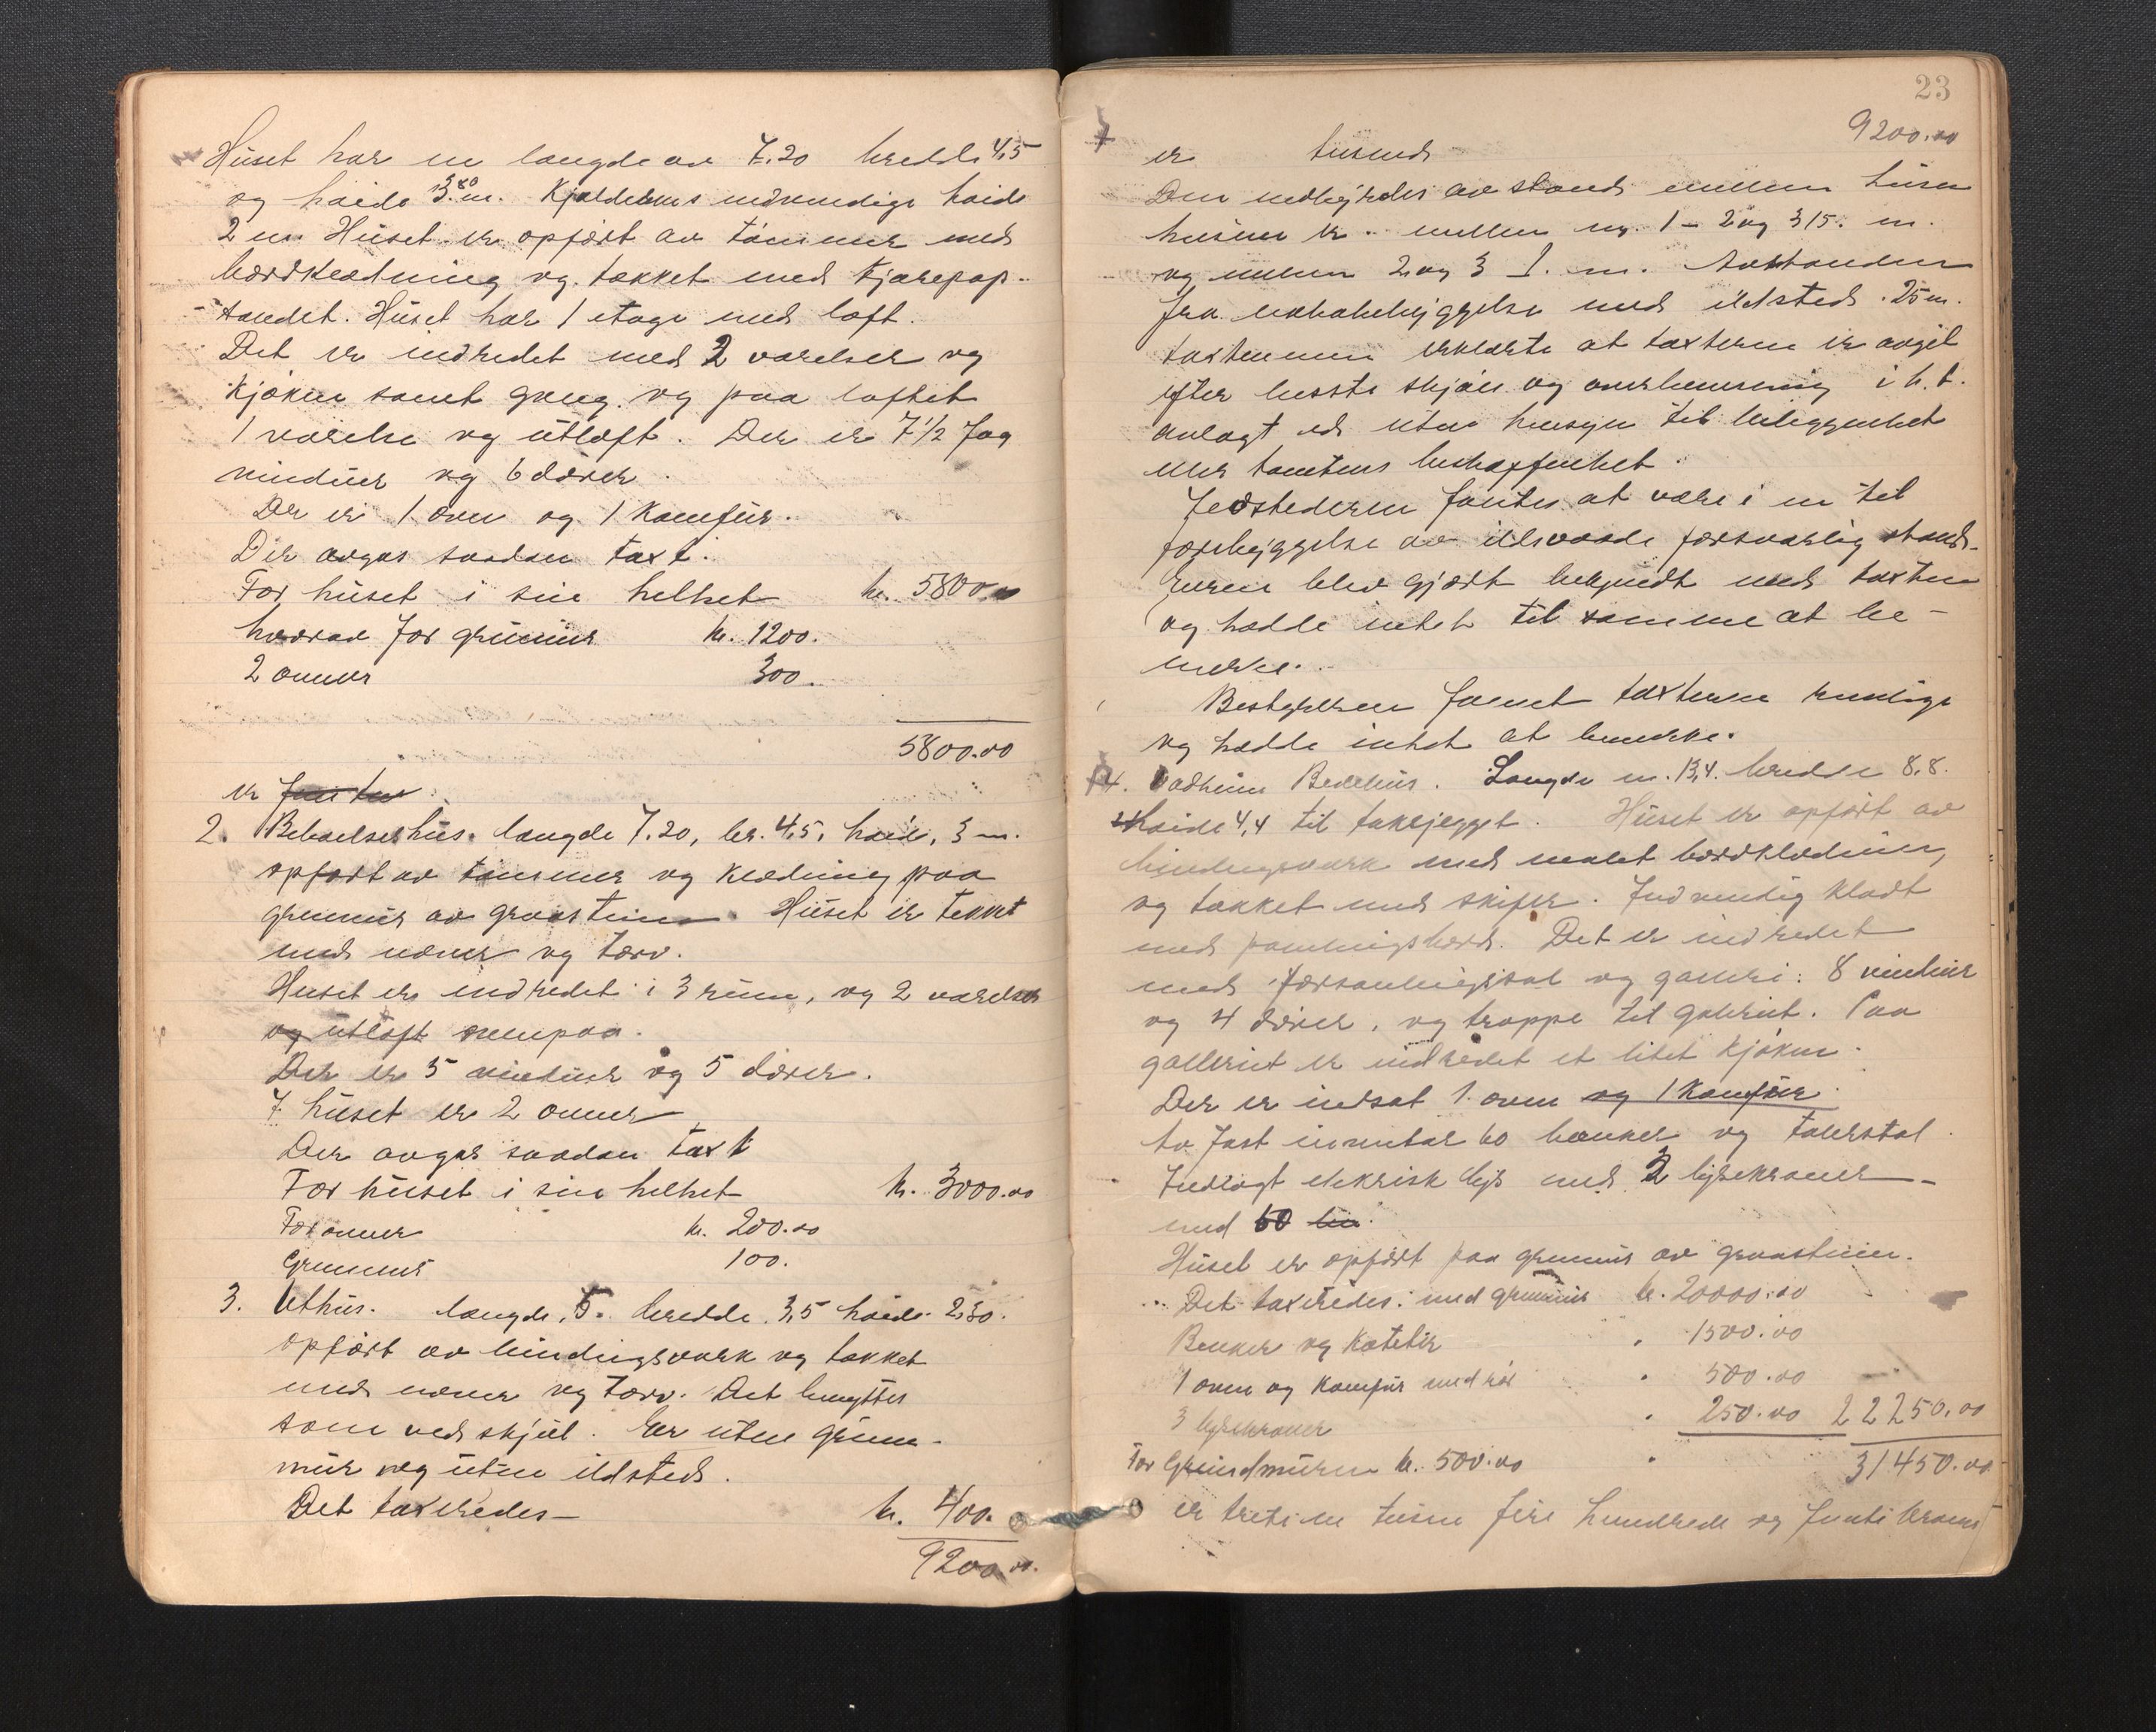 Huset har en længde av 7.20 bredde 4,5
og høide 3.80 m. Kjelderens indvendige høide
2 m. Huset er opført av tømmer med
bordklædning og tækket med tjærepap-
tandet. Huset har 1 etage med loft.
Det er indredet med 2 værelser og
kjøken samt gang. og paa loftet
1 værelse og utloft. Der er 7 1/2 fag
vinduer og 6 dører.
Der er 1 oven og 1 Komfür.
Der avgas saadan taxt.
For huset i sin helhet kr. 5800.00
herav for grunmur kr. 1200.
2 ovner 300.
5800.00
er
2. Beboelseshus. længde 7.20, br. 4,5, høide, 3 m.
opført av tømmer og klædning paa
grunmur av graastein. Huset er tekket
med næver og torv.
Huset er indredet i 3 rum, og 2 værelser
og utloft ovenpaa.
Der er 5 vinduer og 5 dører.
I huset er 2 ovner
Der avgas saadan taxt
For huset i sin helhet kr. 3000.00
For ovner kr. 200.00
Grunmur 100.
3. Uthus. længde, 5. bredde 3,5 høide 2,30.
opført av bindingsverk og tækket
med næver og torv. Det benyttes
som vedskjul. Er uten grun-
mur og uten ildsted.
Det taxeredes kr. 400.
9200.00.
23
9200.00
er tusend
Den indbyrdes avstand mellem husen
husene er mellem nr. 1 - 2 og 3 15. m.
og mellem 2 og 3 1. m. Avstanden
fra nabobebyggelse med ildsted 25 m.
taxtmenne erklærte at taxterne er avgit
efter bedste skjøn og overbevisning i h.t.
avlagt ed uten hensyn til beliggenhet
eller tomtens beskaffenhet.
Ildstederne fantes at være i en til
forebyggelse av ildsvaade forsvarlig stand.
Eieren blev gjort bekjendt med taxten
og hadde intet til samme at be-
merke.
Bestyreren fannt taxterne rimelige
og hadde intet at bemerke.
4. Vadheim Bedehus. Længde m. 13,4. bredde 8,8.
høide 4,4 til takskjegget. Huset er opført av
bindingsverk med malet bordklædning
og tækket med skifer. Indvendig klædt
med panelingsbord. Det er indredet
med forsamlingssal og galleri: 8 vinduer
og 4 dører, og trappe til galleriet. Paa
galleriet er indredet et litet kjøken.
Der er indsat 1 oven og 1 Komfür.
Av fast inventar 60 bænker og talerstol.
Indlagt elekrisk lys med 2 lysekroner
med 60
Huset er opført paa grunmur av graastein.
Det taxeredes: med grunmur kr. 20000.00
Benker og Kateter " 1500.00
1 oven og Komfur med rør " 500.00
3 lysekroner " 250.00 22250.00
For Grundmuren kr. 500.00 " 31450.00
er treti en tusen fire hundrede og femti kroner